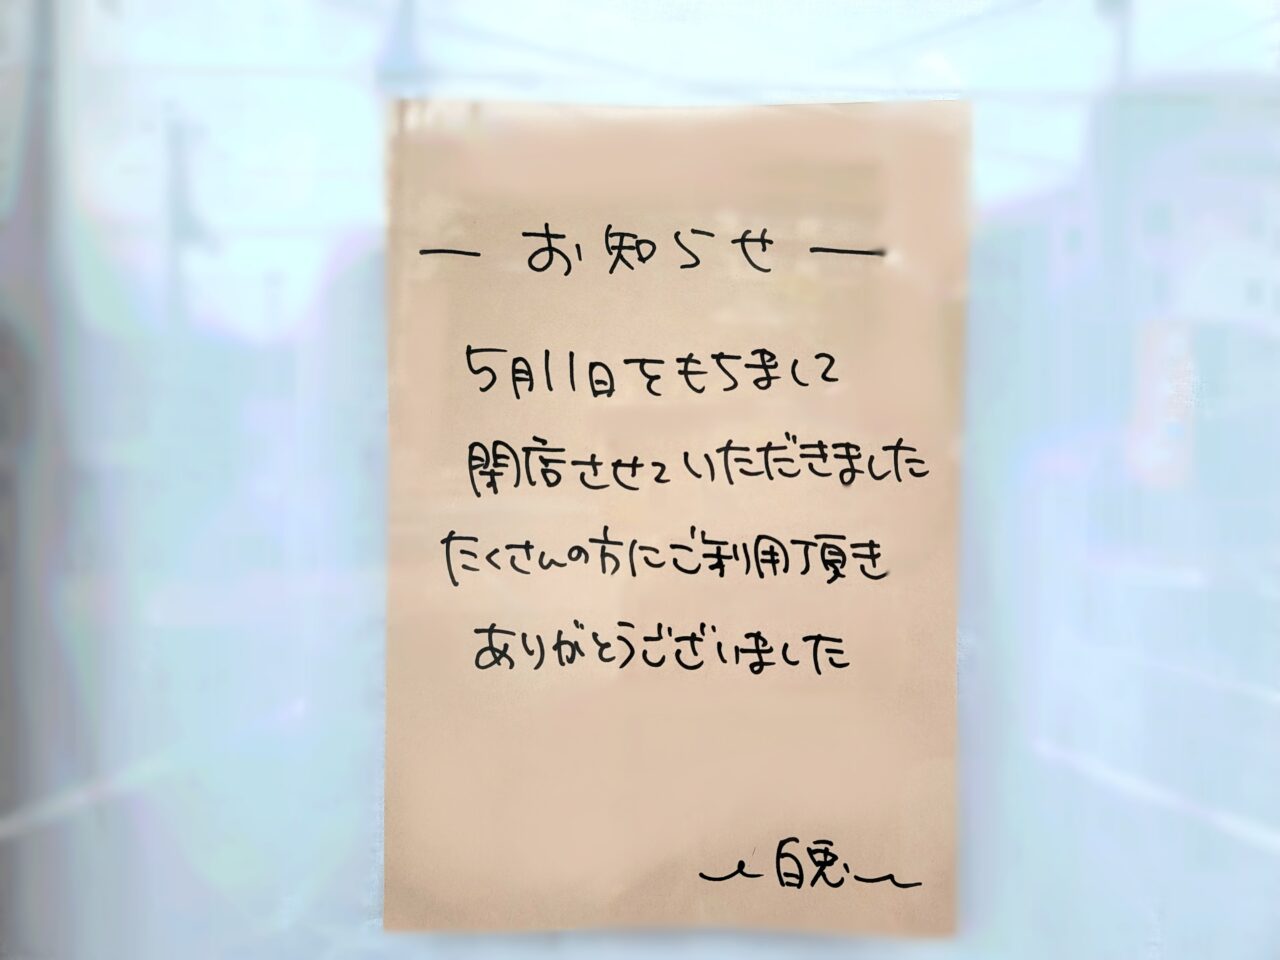 ― お知らせ ―
5月11日をもちまして
閉店させていただきました
たくさんの方にご利用頂き
ありがとうございました
～白兎～